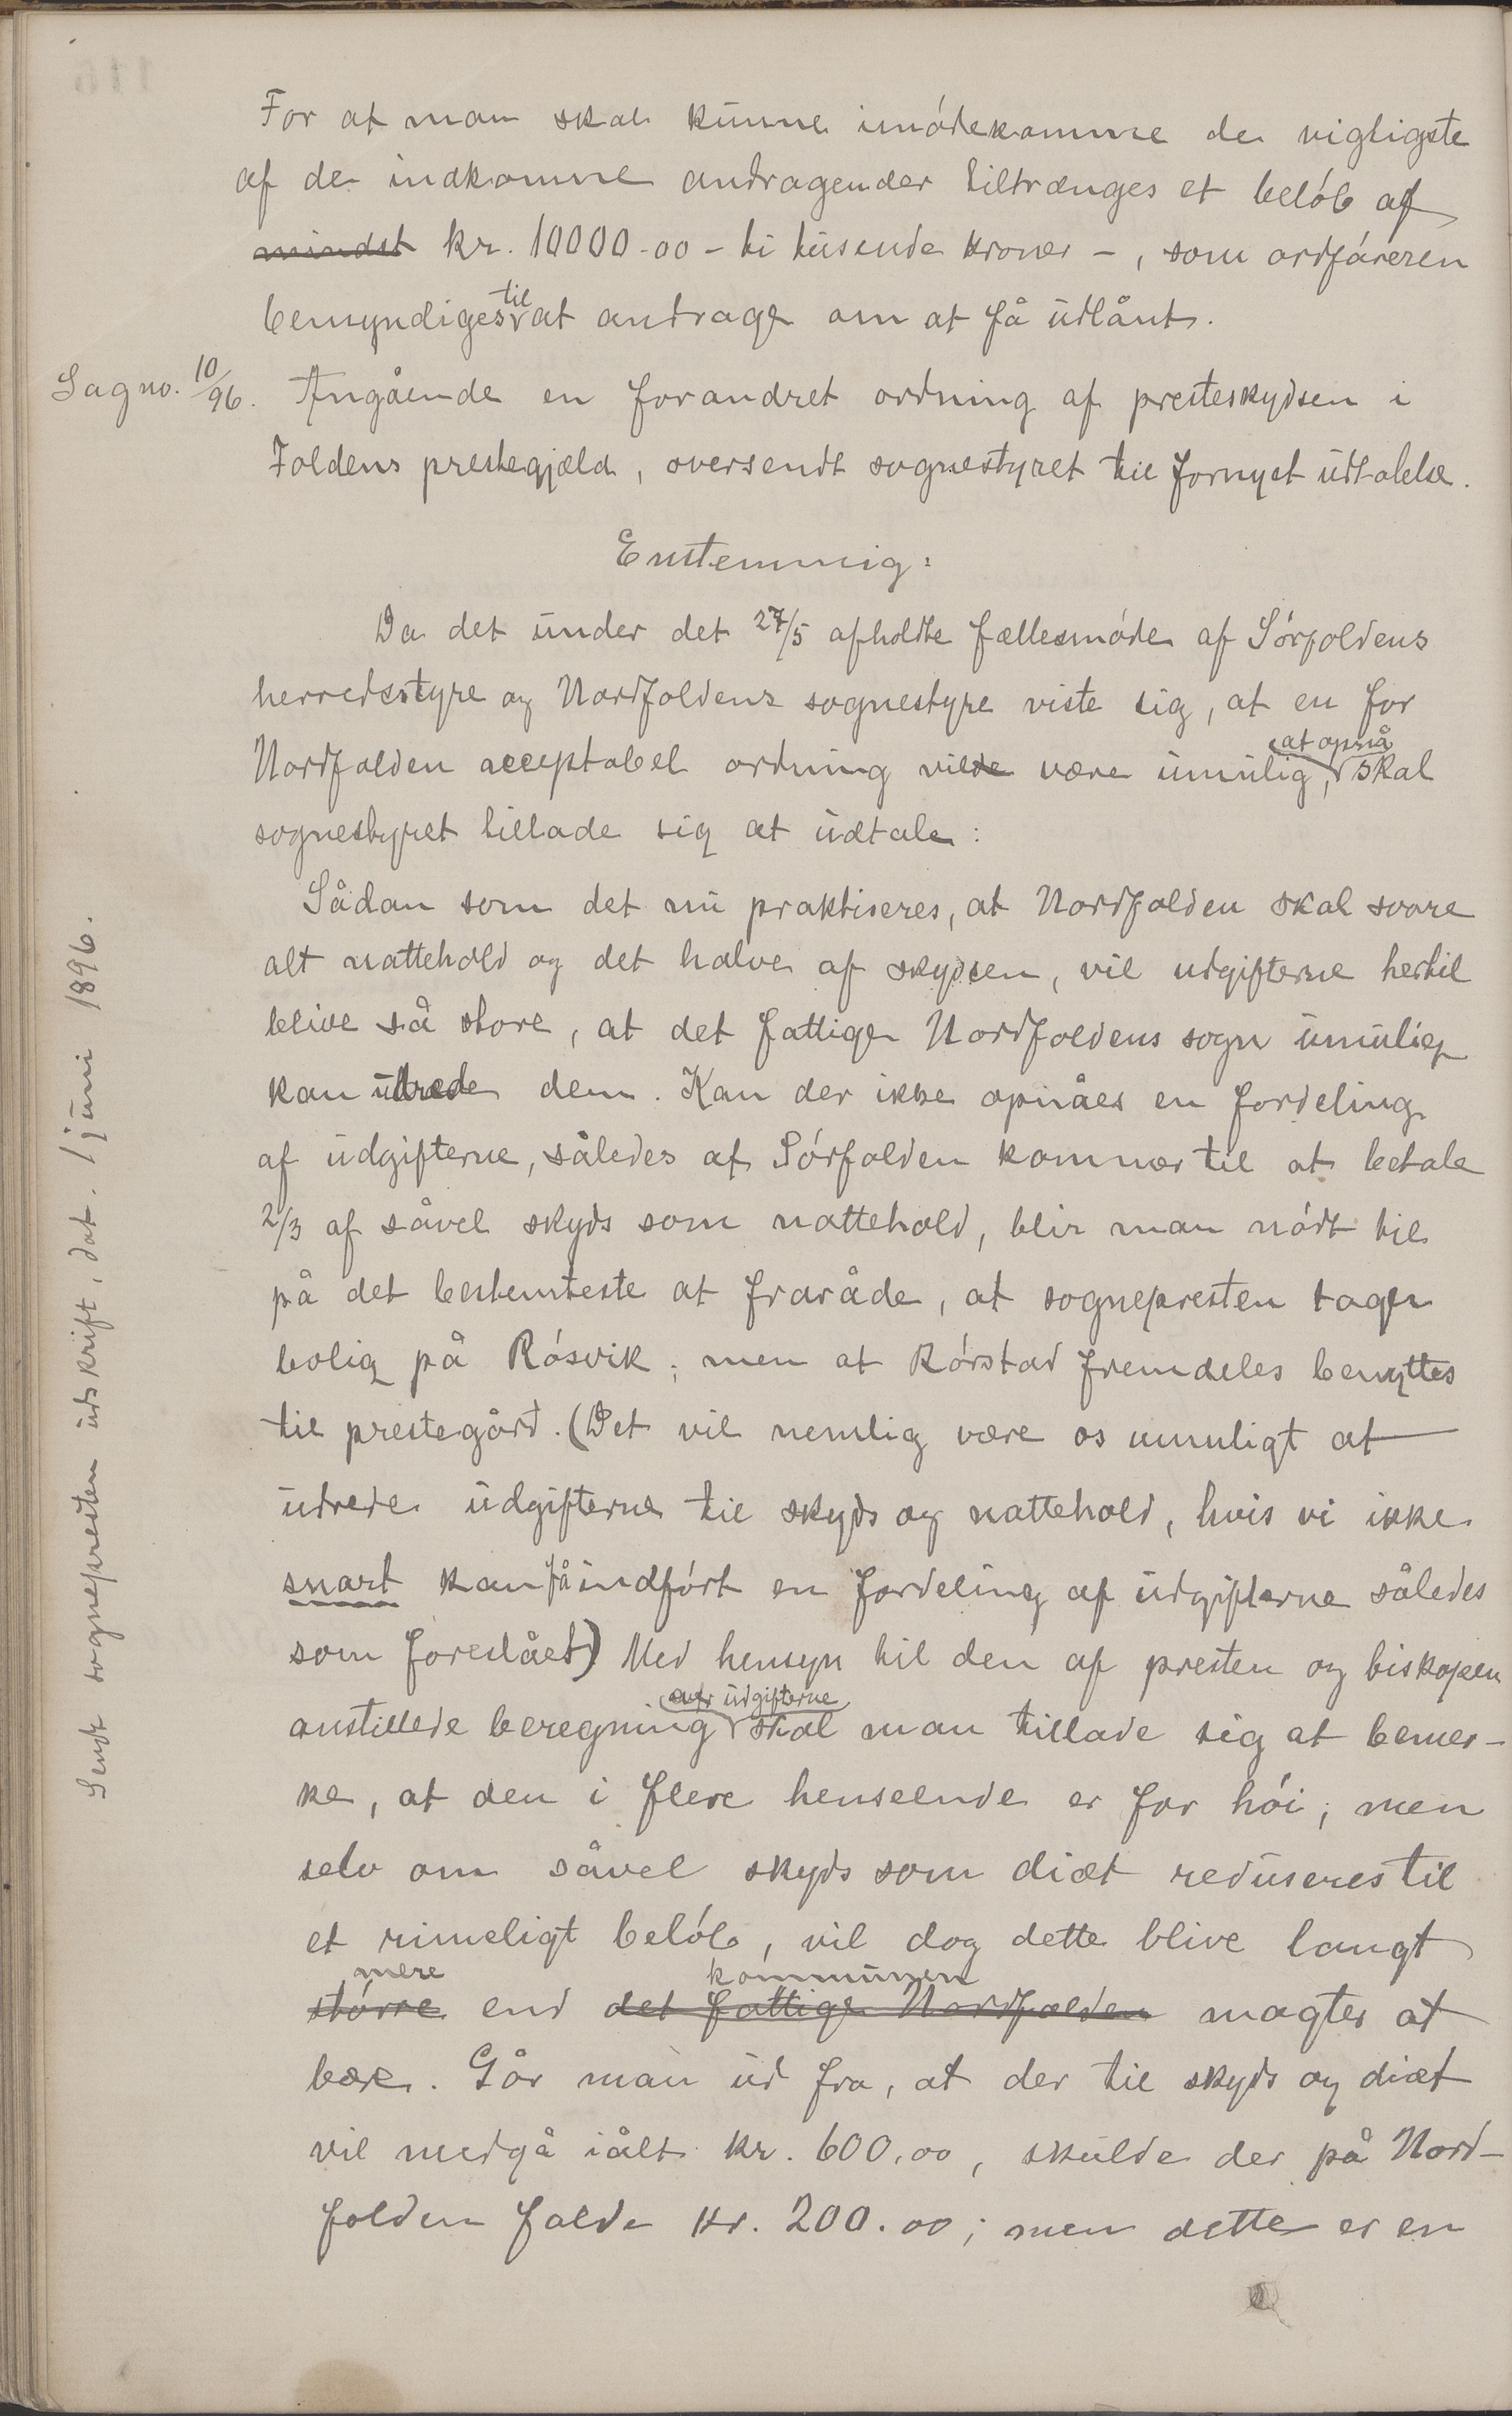 For at man skal kunne imødekomme de vigtigste
af de indkomne andragender tiltrænges et beløb af
mindst kr. 10000-00 - ti tusende kroner -, som ordføreren
bemyndiges til at andrage om at få udlånt.
Sag no. 10/96. Angående en forandret ordning af presteskydsen i
Foldens prestegjæld, oversendt sognestyret til fornyet udtalelse.
Enstemmig:
Da det under det 27/5 afholdte fællesmøde af Sørfoldens
herredsstyre og Nordfoldens sognestyre viste sig, at en for
Nordfolden acceptabel ordning vilde være umulig, at opnå skal
sognestyret tillade sig at udtale:
Sådan som det nu praktiseres, at Nordfolden skal svare
alt nattehold og det halve af skydsen, vil udgifterne hertil
blive så store, at det fattige Nordfoldens sogn umulig
kan udrede dem. Kan der ikke opnåes en fordeling
af udgifterne, således at Sørfolden kommer til at betale
2/3 af såvel skyds som nattehold, blir man nødt til
på det bestemteste at fraråde, at sognepresten tager
bolig på Røsvik; men at Rørstad fremdeles benyttes
til prestegård. (Det vil nemlig være os umuligt at
udrede udgifterne til skyds og nattehold, hvis vi ikke
snart kan få indført en fordeling af udgifterne således
som foreslået) Med hensyn til den af presten og biskopen
anstillede beregning over udgifterne skal man tillade sig at bemer-
ke, at den i flere henseende er for høi; men
selv om såvel skyds som diæt reduseres til
et rimeligt beløb, vil dog dette blive langt
større mere end det fattige Nordfolden kommunen magter at
bære. Går man ud fra, at der til skyds og diæt
vil medgå ialt kr. 600.00, skulde der på Nord-
folden falde kr. 200.00; men dette er en
Sendt sognepresten udskrift, dat. 1 juni 1896.